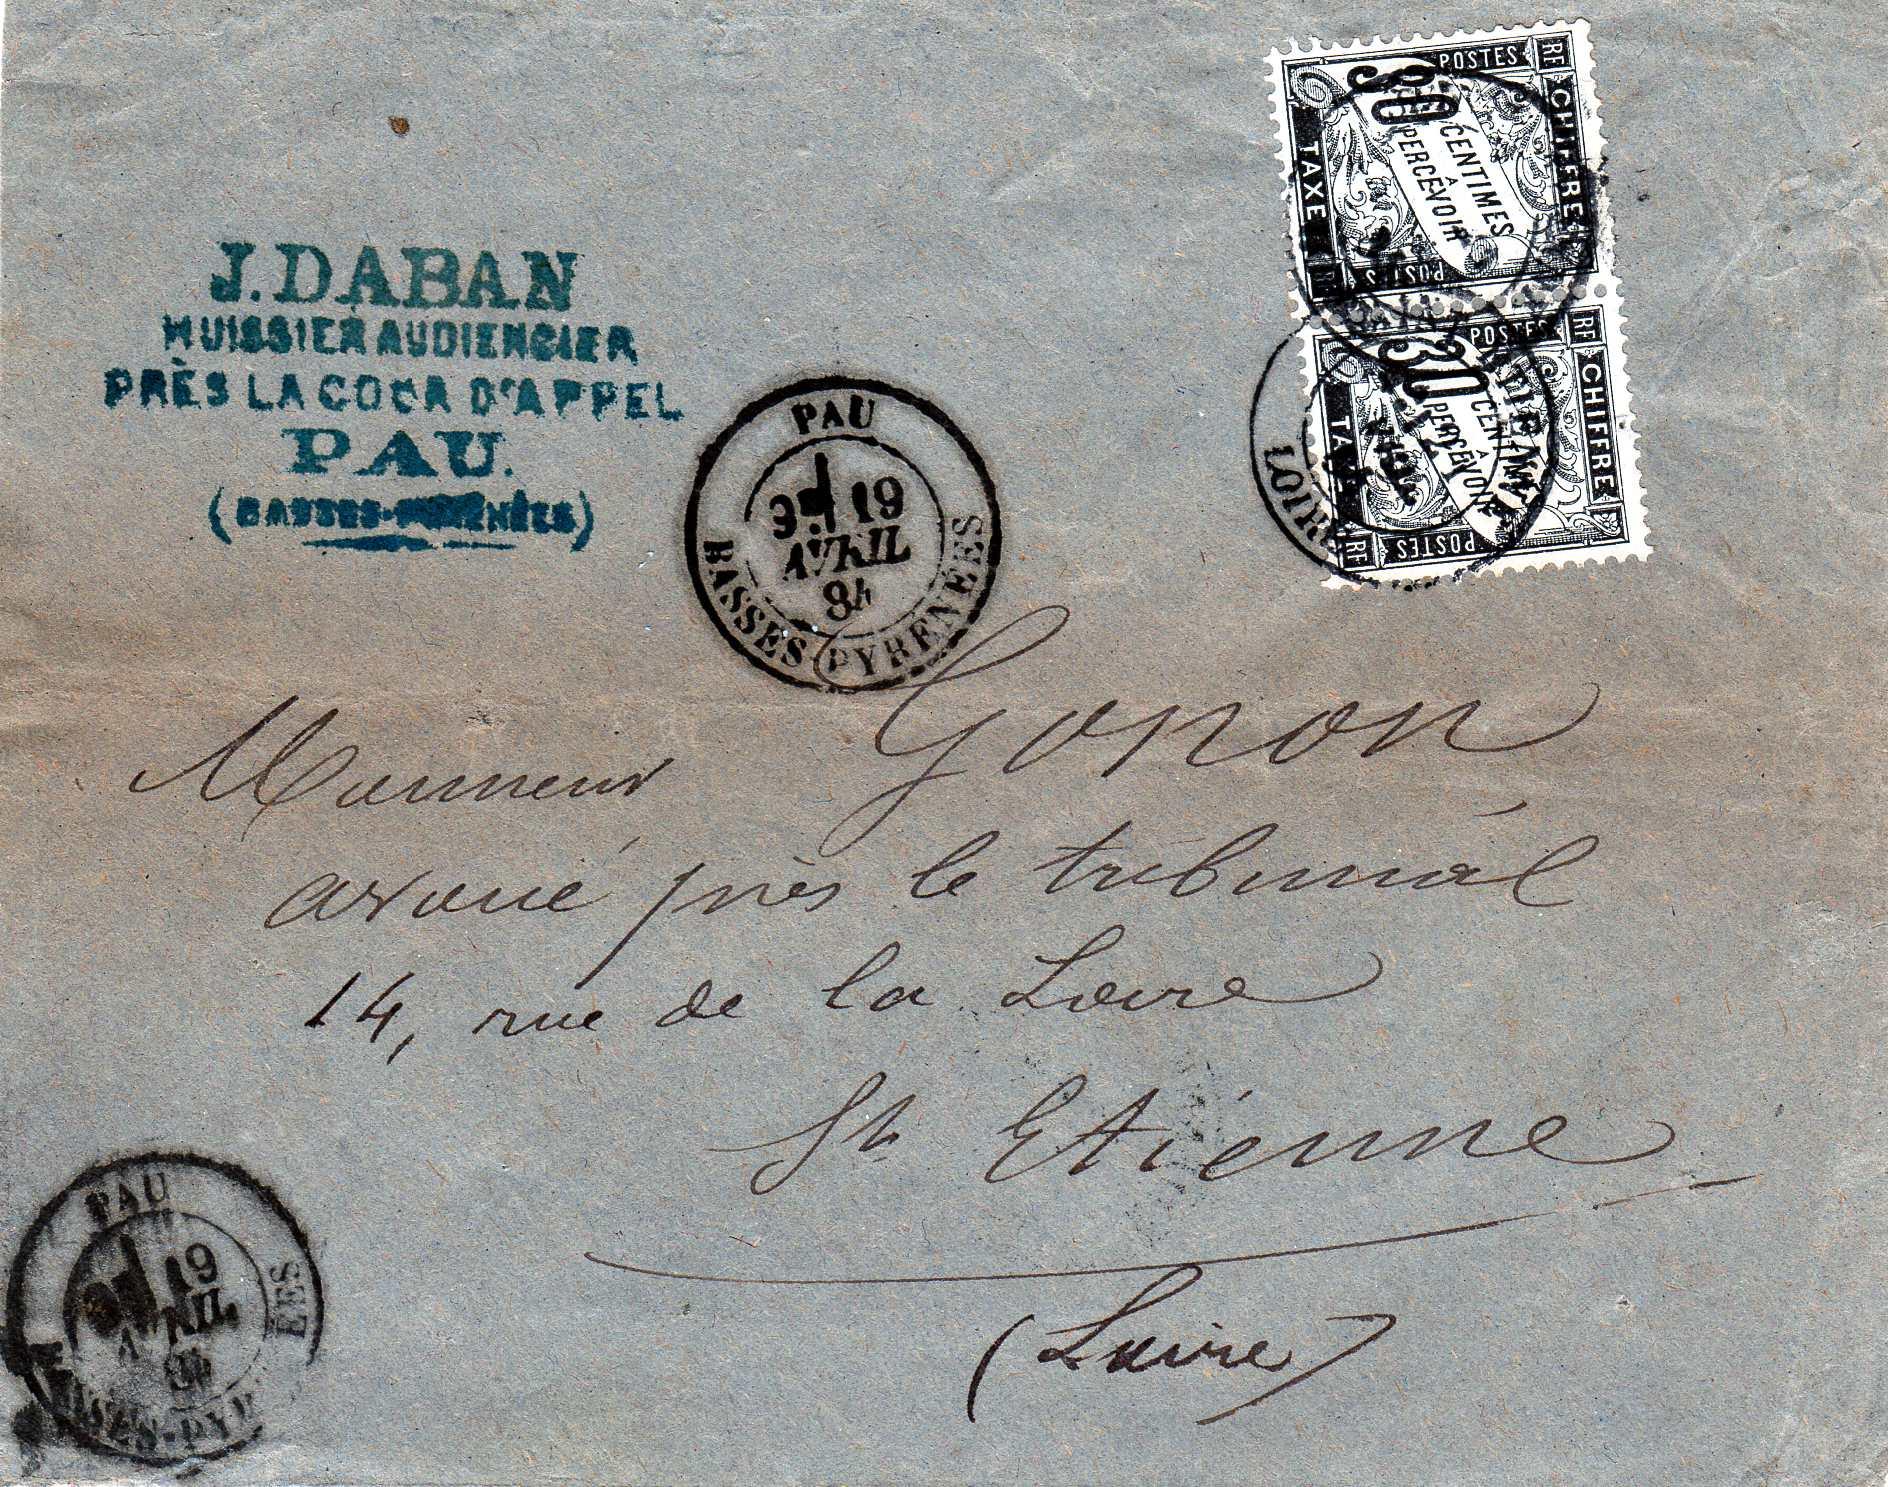 J. DABAN
HUISSIER AUDIENCIER
PRÈS LA COUR D'APPEL
PAU.
(BASSES-PYRÉNÉES)
PAU
3E 19
AVRIL
84
BASSES-PYRENEES
RF CHIFFRE
POSTES
30
CENTIMES
À
PERCEVOIR
TAXE
POSTES
RF CHIFFRE
POSTES
30
CENTIMES
À
PERCEVOIR
TAXE
POSTES
RF
LOIRE
Monsieur Gonon
avoué près le tribunal
14, rue de la Loire
St Etienne
(Loire)
PAU
19
AVRIL
84
BASSES-PYRENEES